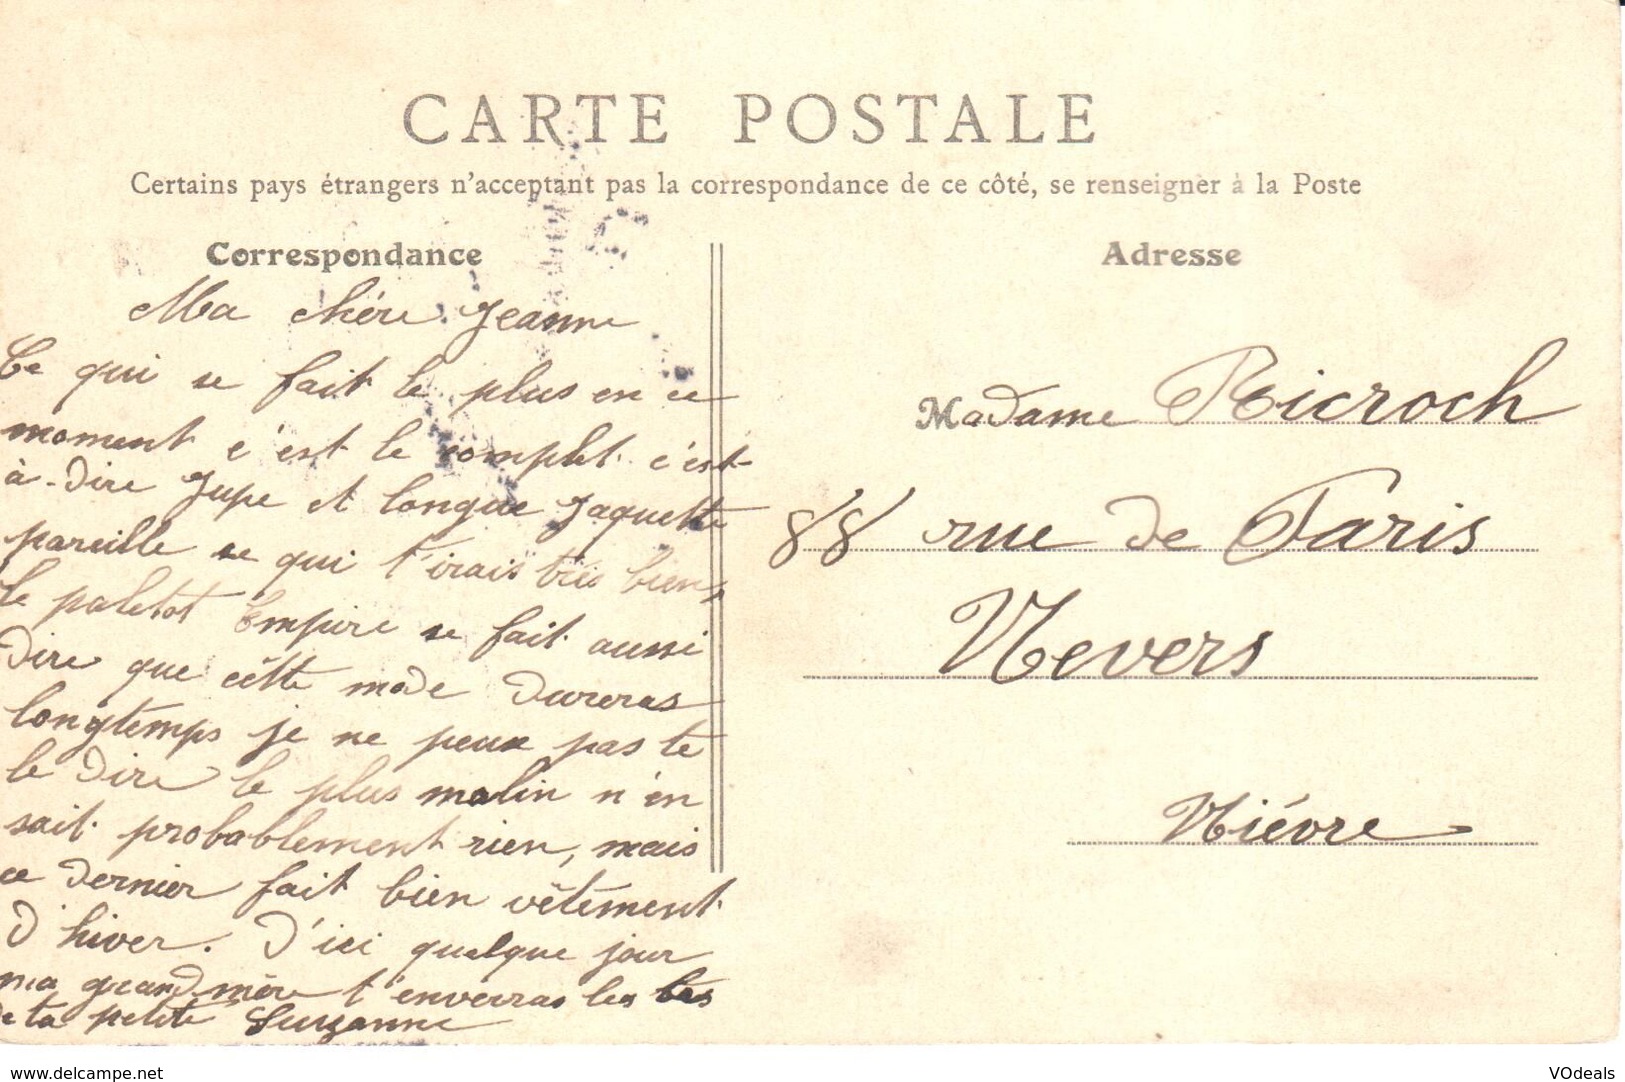 CARTE POSTALE
Certains pays étrangers n'acceptant pas la correspondance de ce côté, se renseigner à la Poste
Correspondance
Ma chère Jeanne
Ce qui se fait le plus en ce
moment c'est le complet c'est-
à-dire Jupe et longue Jaquette
pareille se qui t'irais très bien,
le paletot Empire se fait aussi
dire que cette mode dureras
longtemps je ne peux pas te
le dire le plus malin n'en
sait probablement rien, mais
ce dernier fait bien vêtement
d'hiver. D'ici quelque jour
ma grand mère t'enverras les bas
de ta petite Suzanne
Adresse
Madame Ricroch
88 rue de Paris
Nevers
Nièvre
delcampe.net
VOdeals